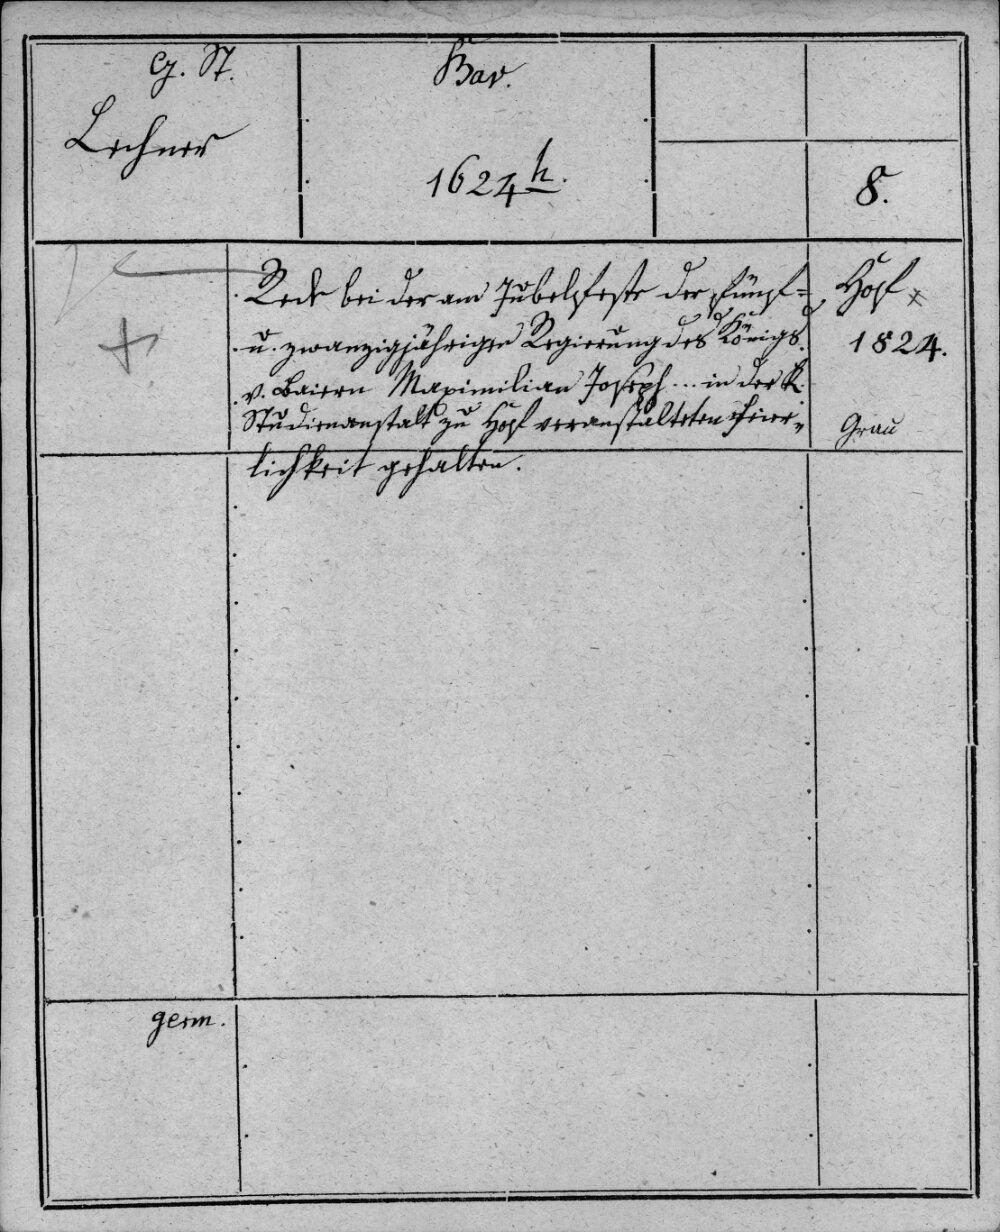 G. St.
Lechner
Bav.
1624h.
8.
Rede bei der am Jubelfeste der fünf=
u. zwanzigjährigen Regierung des Königs
v. Baiern Maximilian Joseph ... in der K.
Studienanstalt zu Hof veranstalteten Feier„
lichkeit gehalten.
Hof
1824.
Grau
germ.